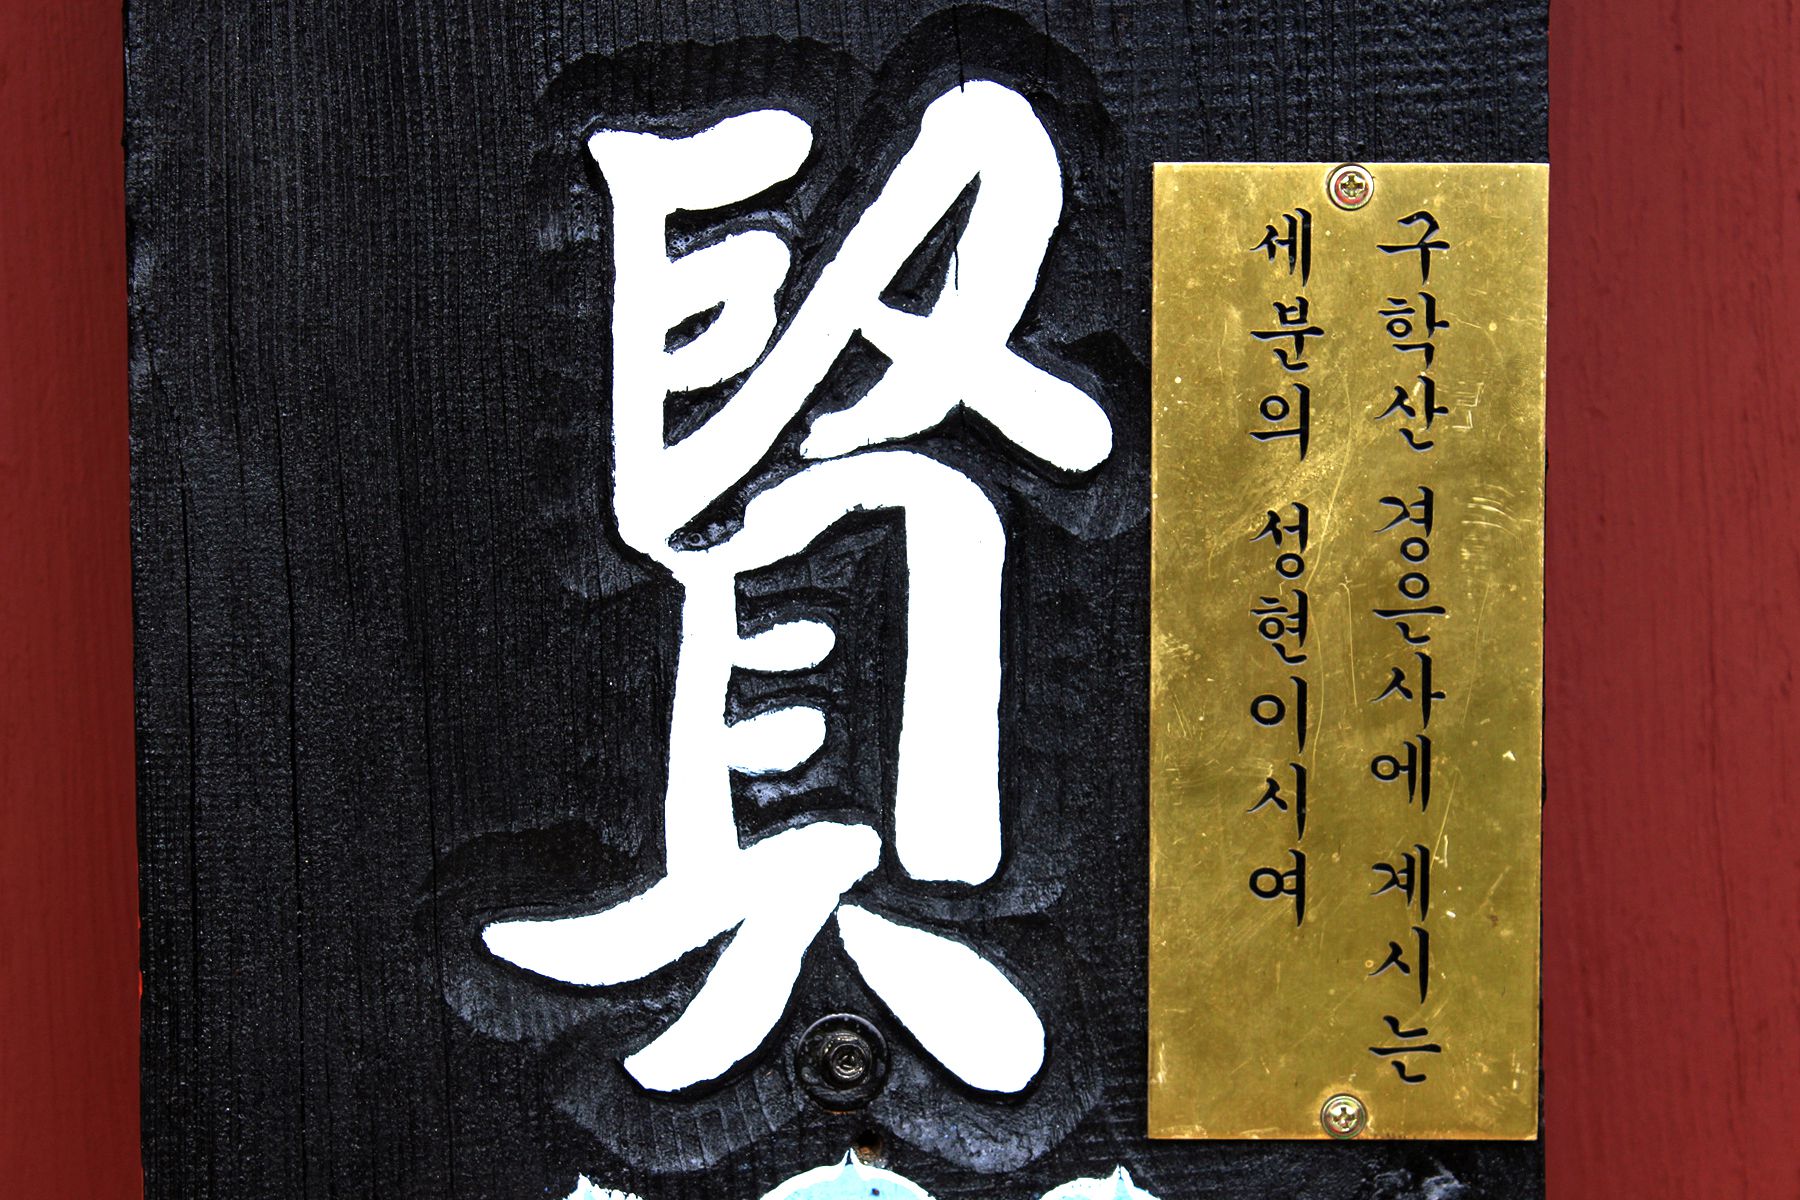 賢
구학산 경은사에 계시는
세분의 성현이시여